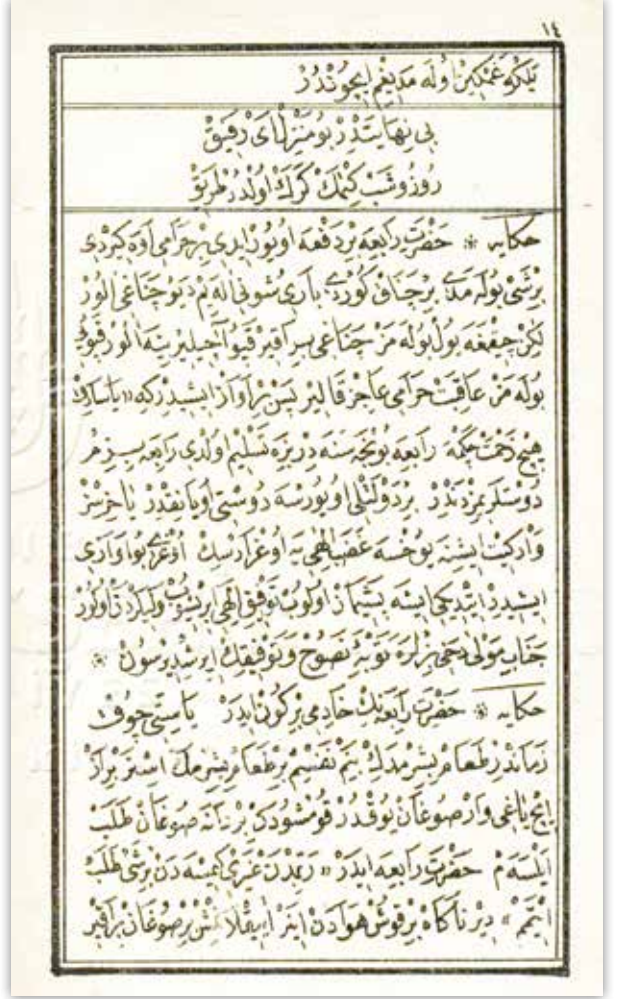 ١٤
بلكه غمكين أوله مديغم ايچوندر
بى نهايتدر بو منزل اى رفيق
روز و شب كتمك كرك اولدر طريق
حكايه * حضرت رابعه بر دفعه اويور ايدى بر حرامى اوه كيردى
بر شى بوله مدى بر چناق كوردى بارى شونى اله يم ديو چناغى الور
لكن چيقمغه يول بوله مز چناغى براقير قپو آچيلير ينه الور قپويى
بوله مز عاقبت حرامى عاجز قالير پس بر آواز ايشيدر كه « يا سارق
هيچ زحمت چكمه رابعه بونجه سنه در بزه تسليم اولدى رابعه بزم
دوستلريمزدندر بر دولتلى اويورسه دوستى اويانقدر يا خرسز
وار كيت ايشنه يوخسه غضب الهى يه اوغرارسك اوغرى بو آوازى
ايشيدر ايتديكى ايشه پشيمان اولوب توفيق الهى ايريشوب وليلردن اولور
جناب مولى دخى بزلره توبۀ نصوح و توفيقك ايرشديرسون *
حكايه * حضرت رابعه نك خادمى بر كون ايدر يا ستى چوق
زماندر طعام بشرمدك بنم نفسم بر طعام بشرمك استر بر آز
ايچ ياغى وار صوغان يوقدر قومشودن بر دانه صوغان طلب
ايلسه م حضرت رابعه ايدر « ربمدن غيرى كمسه دن بر شى طلب
ايتمم » دير ناكاه بر قوش هوادن اينر بر صوغان براقير